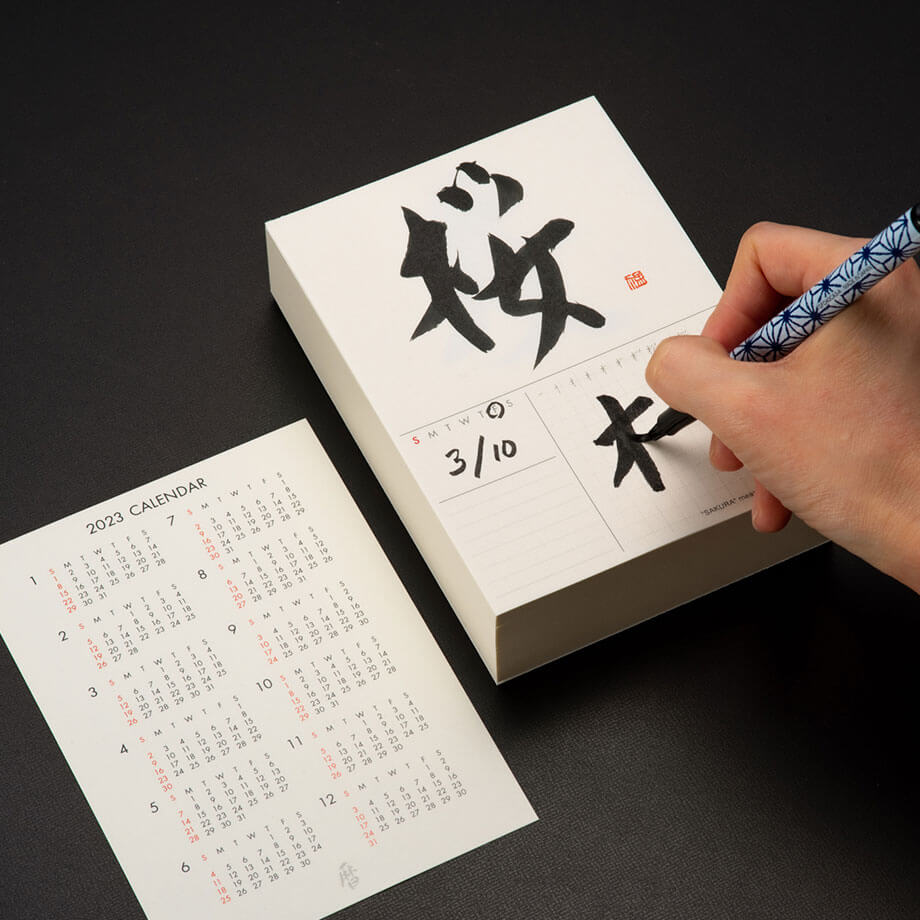 桜
福
S M T W T F S
3/10
木
"SAKURA"
2023 CALENDAR
1
S M T W T F S
1 2 3 4 5 6 7
8 9 10 11 12 13 14
15 16 17 18 19 20 21
22 23 24 25 26 27 28
29 30 31
2
S M T W T F S
1 2 3 4
5 6 7 8 9 10 11
12 13 14 15 16 17 18
19 20 21 22 23 24 25
26 27 28
3
S M T W T F S
1 2 3 4
5 6 7 8 9 10 11
12 13 14 15 16 17 18
19 20 21 22 23 24 25
26 27 28 29 30 31
4
S M T W T F S
1
2 3 4 5 6 7 8
9 10 11 12 13 14 15
16 17 18 19 20 21 22
23 24 25 26 27 28 29
30
5
S M T W T F S
1 2 3 4 5 6
7 8 9 10 11 12 13
14 15 16 17 18 19 20
21 22 23 24 25 26 27
28 29 30 31
6
S M T W T F S
1 2 3
4 5 6 7 8 9 10
11 12 13 14 15 16 17
18 19 20 21 22 23 24
25 26 27 28 29 30
7
S M T W T F S
1
2 3 4 5 6 7 8
9 10 11 12 13 14 15
16 17 18 19 20 21 22
23 24 25 26 27 28 29
30 31
8
S M T W T F S
1 2 3 4 5
6 7 8 9 10 11 12
13 14 15 16 17 18 19
20 21 22 23 24 25 26
27 28 29 30 31
9
S M T W T F S
1 2
3 4 5 6 7 8 9
10 11 12 13 14 15 16
17 18 19 20 21 22 23
24 25 26 27 28 29 30
10
S M T W T F S
1 2 3 4 5 6 7
8 9 10 11 12 13 14
15 16 17 18 19 20 21
22 23 24 25 26 27 28
29 30 31
11
S M T W T F S
1 2 3 4
5 6 7 8 9 10 11
12 13 14 15 16 17 18
19 20 21 22 23 24 25
26 27 28 29 30
12
S M T W T F S
1 2
3 4 5 6 7 8 9
10 11 12 13 14 15 16
17 18 19 20 21 22 23
24 25 26 27 28 29 30
31
暦